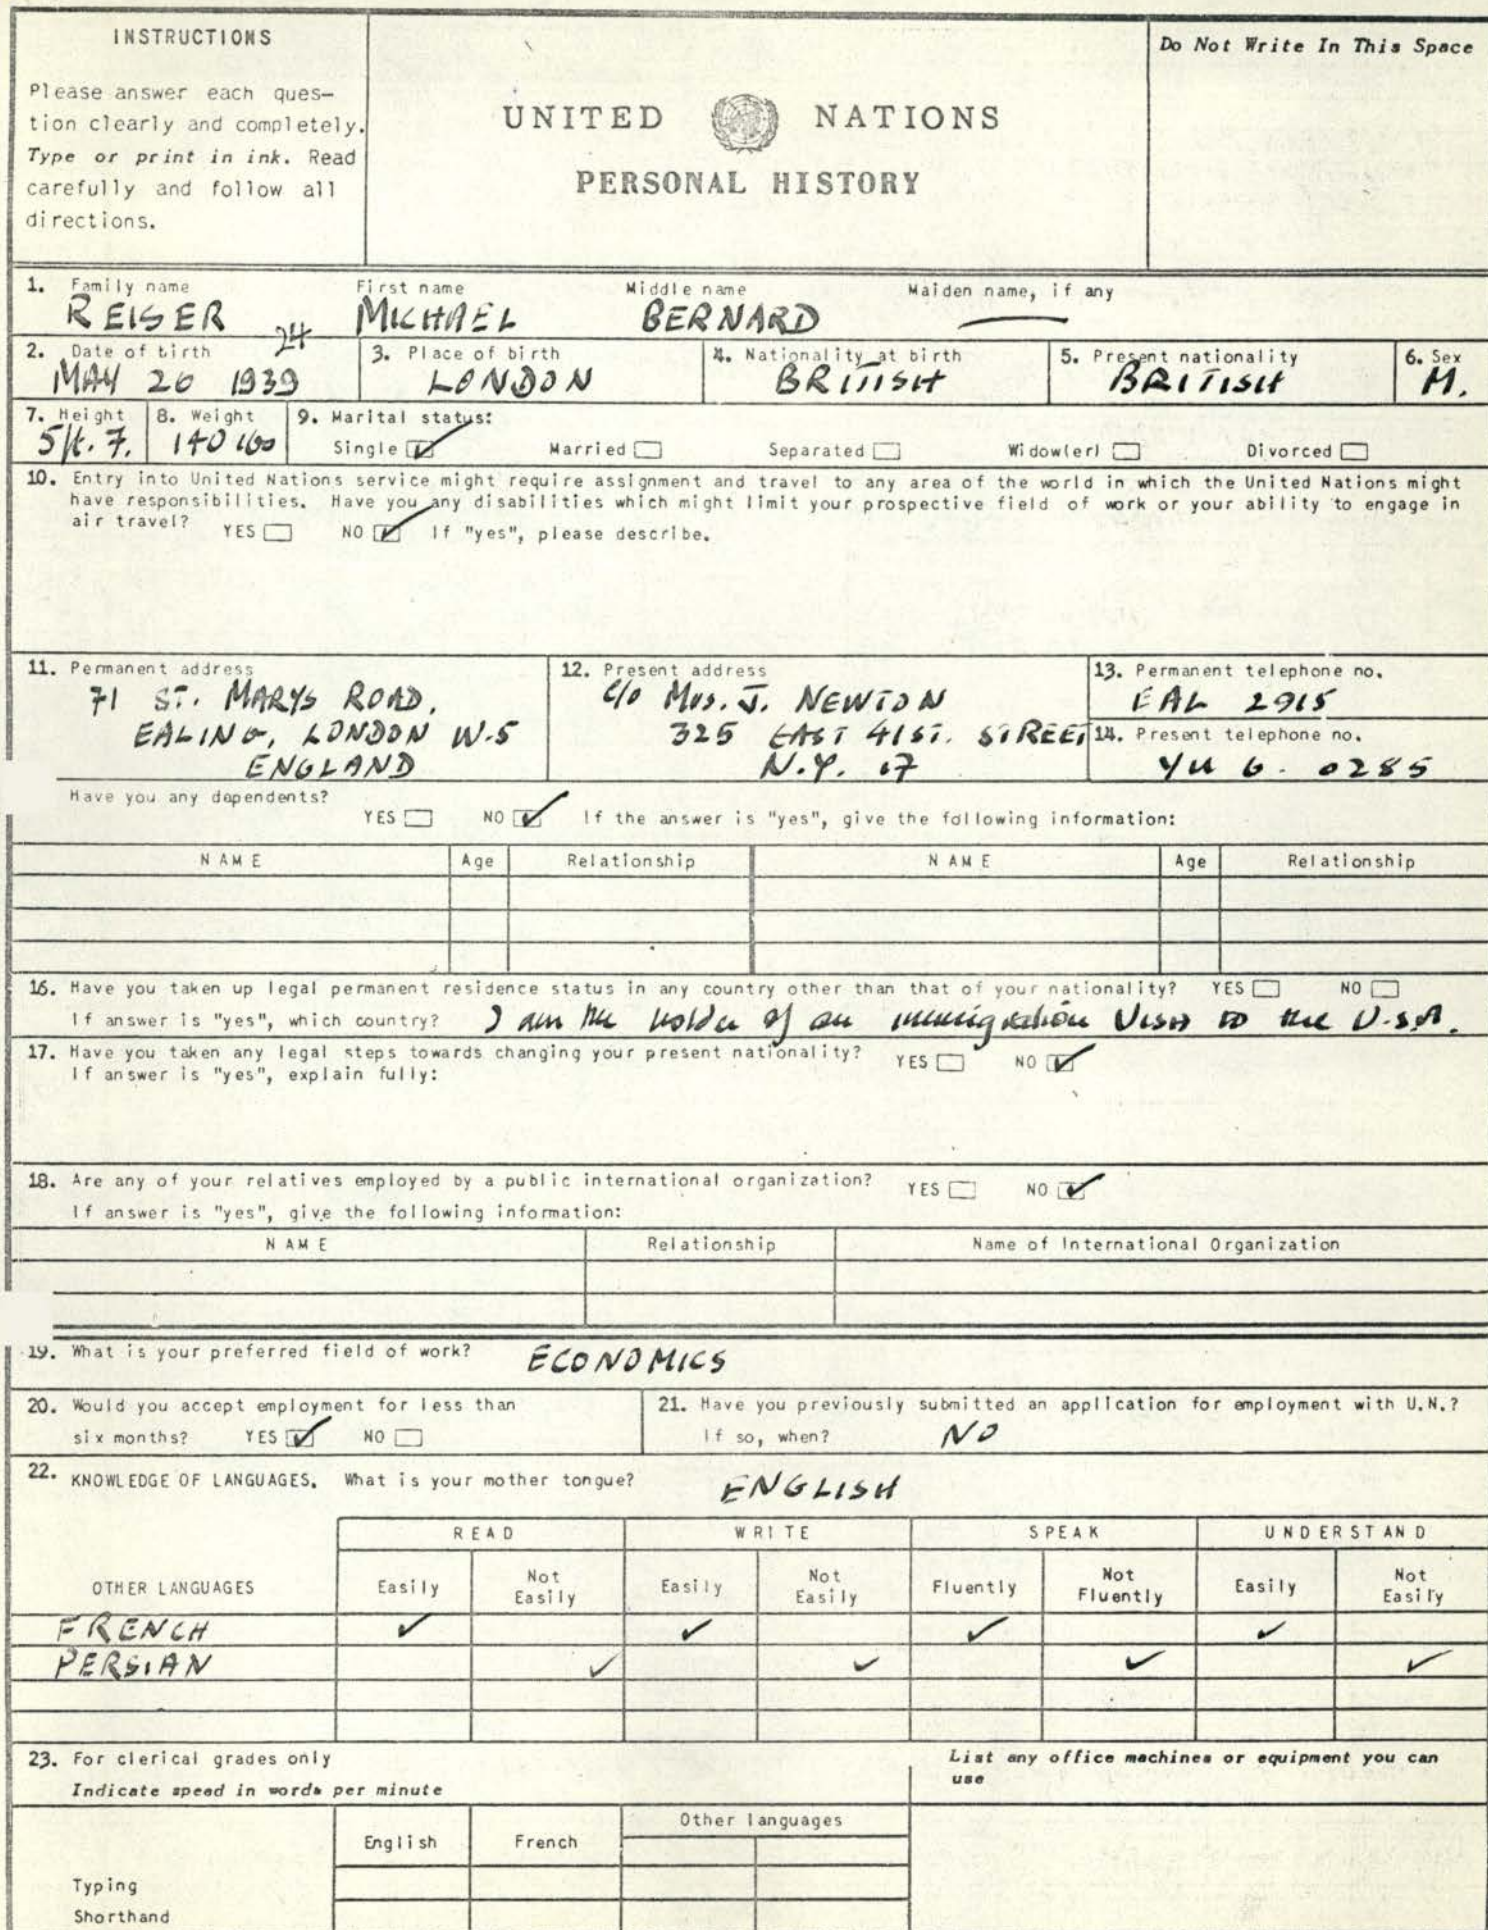 INSTRUCTIONS
Please answer each ques-
tion clearly and completely.
Type or print in ink. Read
carefully and follow all
directions.
UNITED NATIONS
PERSONAL HISTORY
Do Not Write In This Space
1. Family name First name Middle name Maiden name, if any
REISER MICHAEL BERNARD —
24
2. Date of birth 3. Place of birth 4. Nationality at birth 5. Present nationality 6. Sex
MAY 26 1939 LONDON BRITISH BRITISH M.
7. Height 8. Weight 9. Marital status:
5ft. 7. 140 lbs Single ✓ Married Separated Widow(er) Divorced
10. Entry into United Nations service might require assignment and travel to any area of the world in which the United Nations might
have responsibilities. Have you any disabilities which might limit your prospective field of work or your ability to engage in
air travel? YES NO ✓ If "yes", please describe.
11. Permanent address
71 ST. MARYS ROAD,
EALING, LONDON W.5
ENGLAND
12. Present address
c/o Mrs. J. NEWTON
325 EAST 41ST. STREET
N.Y. 17
13. Permanent telephone no.
EAL 2915
14. Present telephone no.
YU 6. 0285
Have you any dependents? YES NO ✓ If the answer is "yes", give the following information:
NAME Age Relationship NAME Age Relationship
16. Have you taken up legal permanent residence status in any country other than that of your nationality? YES NO
If answer is "yes", which country? I am the holder of an immigration Visa to the U.S.A.
17. Have you taken any legal steps towards changing your present nationality? YES NO ✓
If answer is "yes", explain fully:
18. Are any of your relatives employed by a public international organization? YES NO ✓
If answer is "yes", give the following information:
NAME Relationship Name of International Organization
19. What is your preferred field of work? ECONOMICS
20. Would you accept employment for less than
six months? YES ✓ NO
21. Have you previously submitted an application for employment with U.N.?
If so, when? NO
22. KNOWLEDGE OF LANGUAGES. What is your mother tongue? ENGLISH
READ WRITE SPEAK UNDERSTAND
OTHER LANGUAGES Easily Not Easily Easily Not Easily Fluently Not Fluently Easily Not Easily
FRENCH ✓ ✓ ✓ ✓
PERSIAN ✓ ✓ ✓ ✓
23. For clerical grades only
Indicate speed in words per minute
List any office machines or equipment you can
use
English French Other languages
Typing
Shorthand